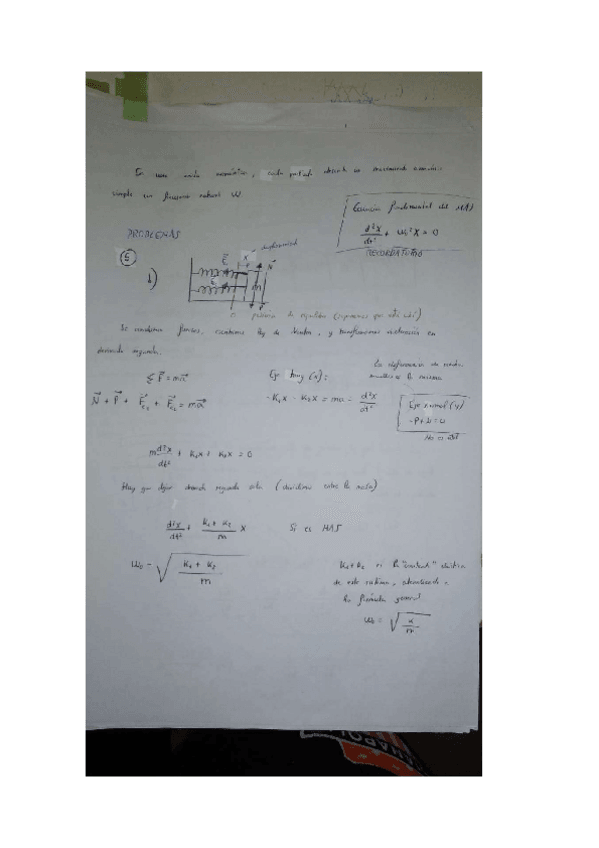 En una onda armónica, cada partícula describe un movimiento armónico
simple con frecuencia natural ω.
Ecuación fundamental del MAS
d²x/dt² + ω₀² x = 0
RECORDATORIO
PROBLEMAS
5
b)
x
N
m
P
0 posición de equilibrio (suponemos que está ahí)
Se consideran fuerzas, ley de Newton, y transformamos aceleración en
derivada segunda.
Σ F = ma
N + P + Fe₁ + Fe₂ = ma
Eje (x):
-K₁x - K₂x = ma = d²x/dt²
La deformación de
la misma
Eje normal (y)
-P+N=0
m d²x/dt² + K₁x + K₂x = 0
Hay que dejar derivada segunda sola (dividimos entre la masa)
d²x/dt² + (K₁ + K₂)/m x Sí es MAS
ω₀ = √((K₁ + K₂)/m)
K₁+K₂ es la "constante" elástica
de este sistema, atendiendo a
la fórmula general
ω₀ = √(K/m)